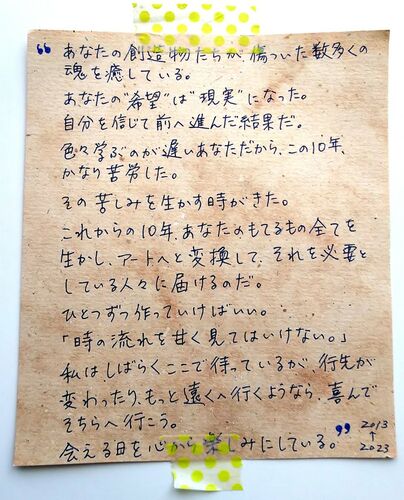 “あなたの創造物たちが、傷ついた数多くの
魂を癒している。
あなたの"希望"は"現実"になった。
自分を信じて前へ進んだ結果だ。
色々学ぶのが遅いあなただから、この10年、
かなり苦労した。
その苦しみを生かす時がきた。
これからの10年、あなたのもてるもの全てを
生かし、アートへと変換して、それを必要と
している人々に届けるのだ。
ひとつずつ作っていけばいい。
「時の流れを甘く見てはいけない。」
私は、しばらくここで待っているが、行先が
変わったり、もっと遠くへ行くようなら、喜んで
そちらへ行こう。
会える日を心から楽しみにしている。”
2013
↑
2023